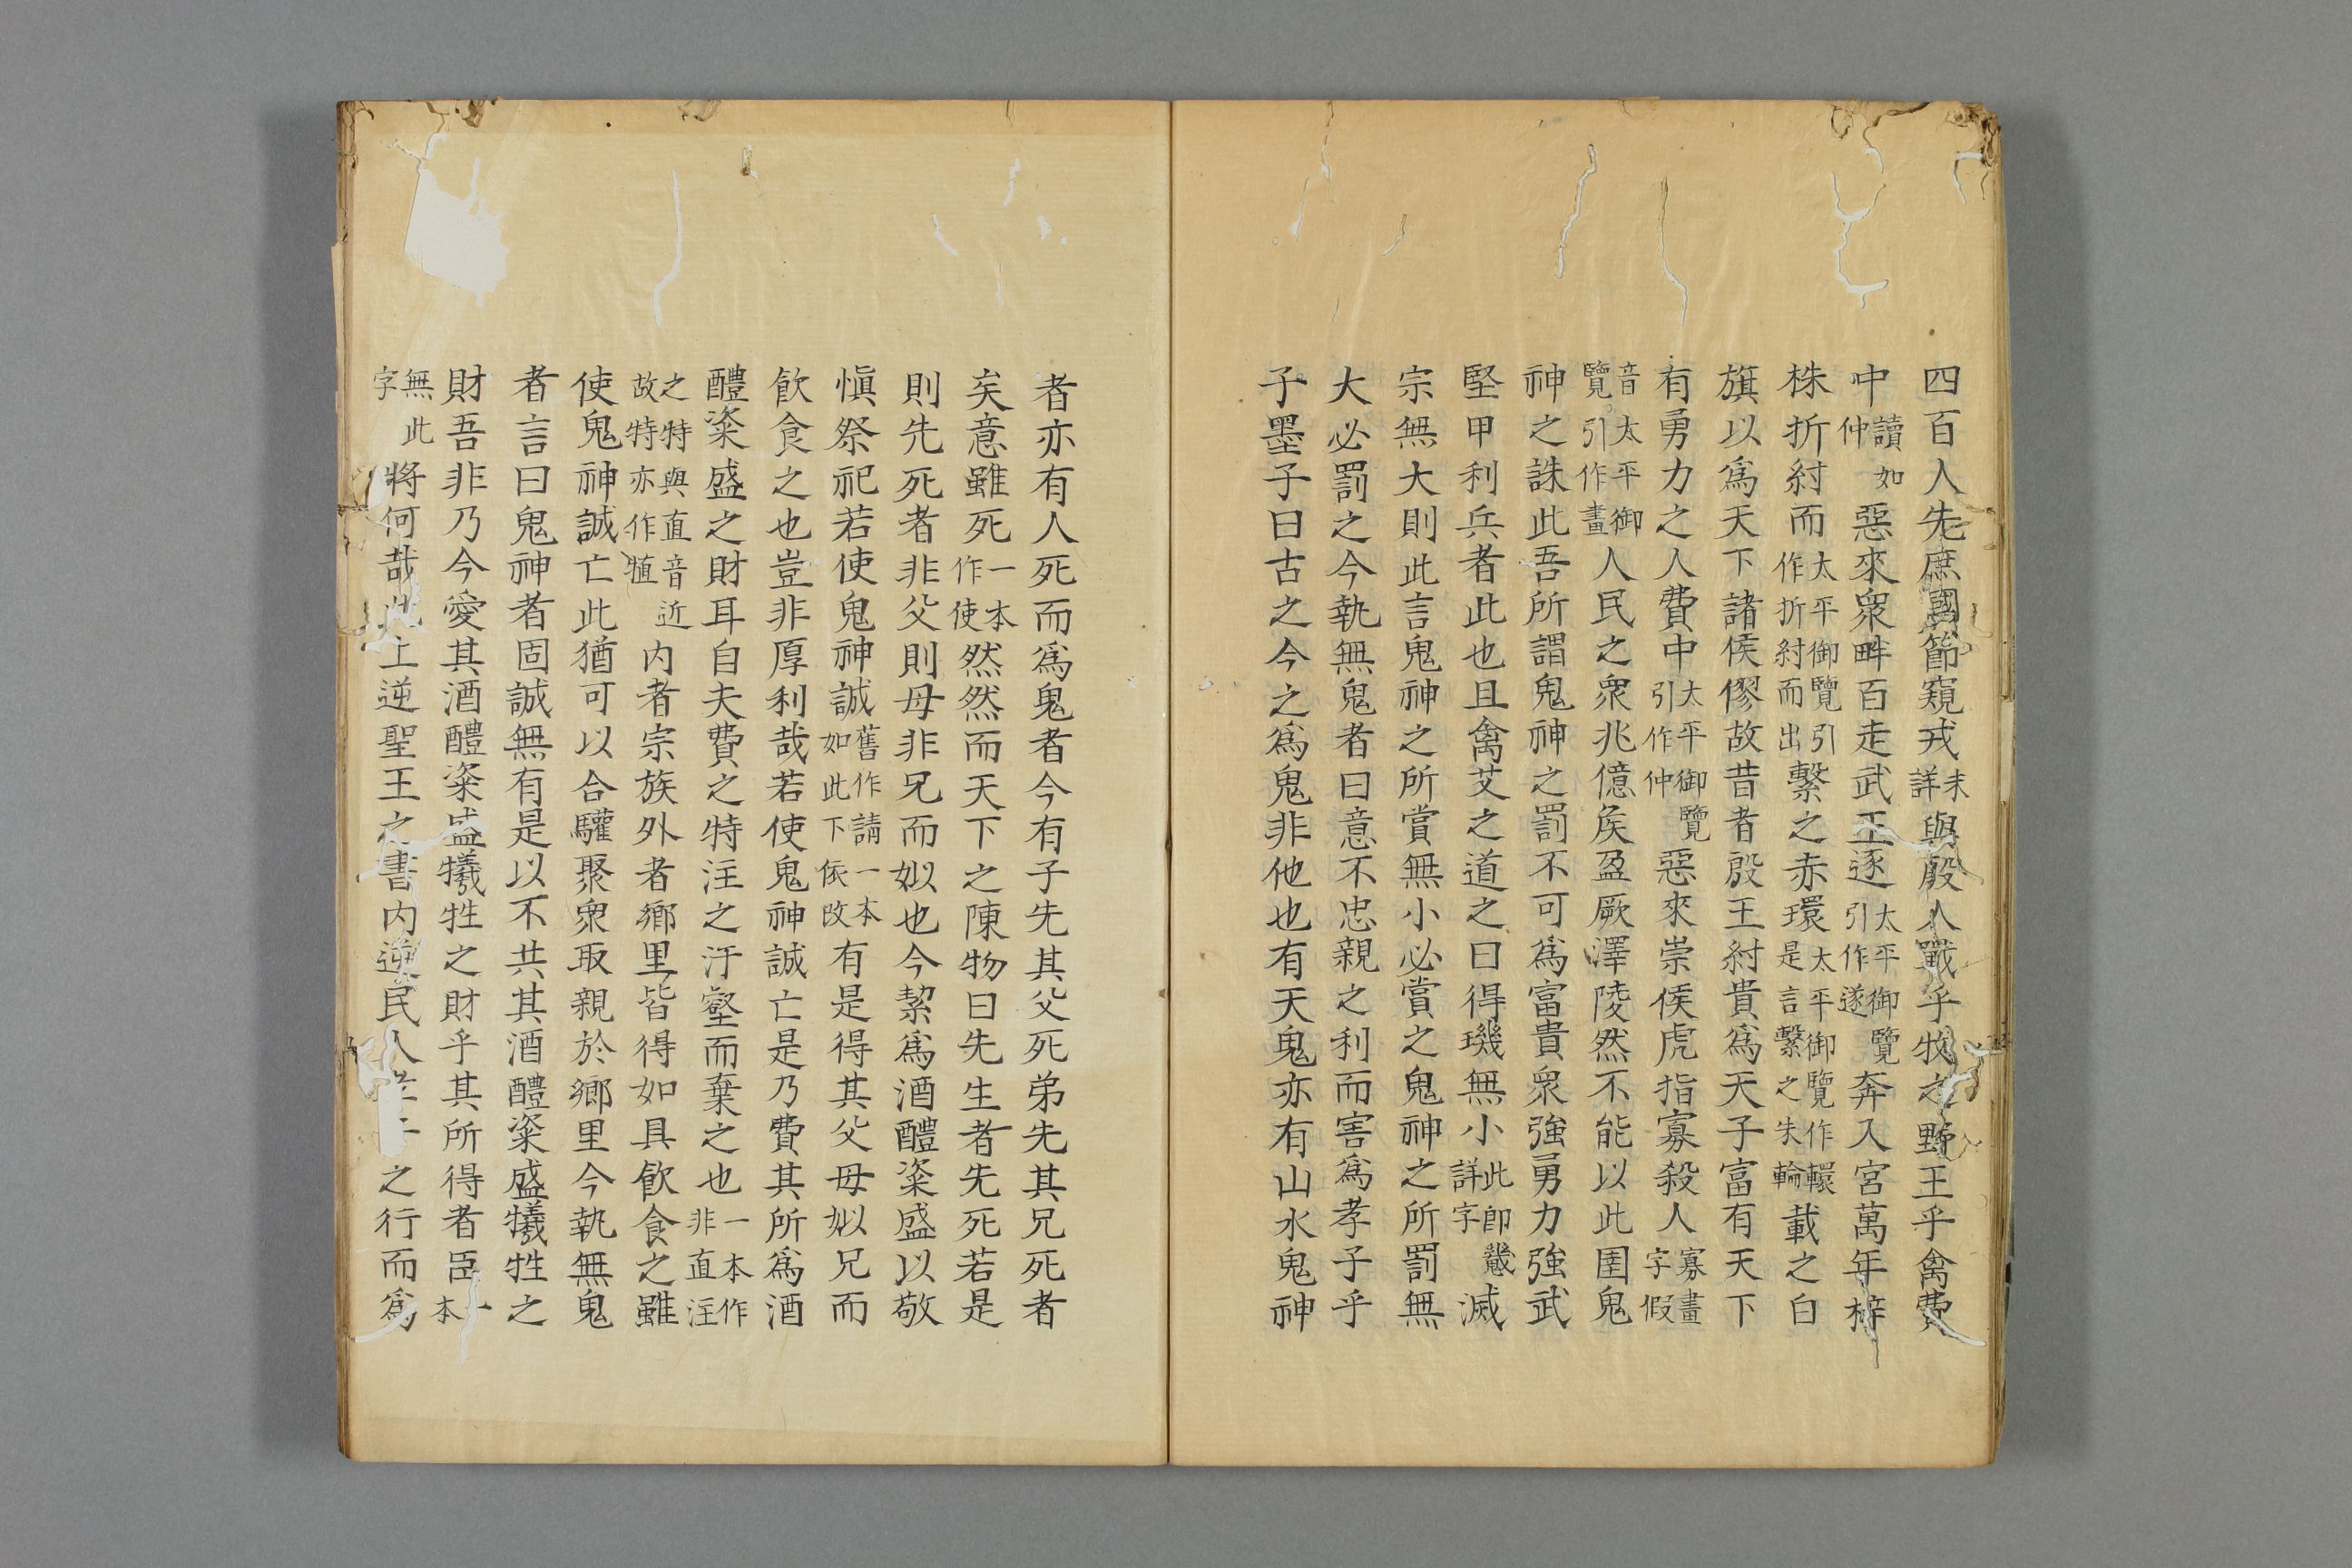 四百人先庶國節窺戎未詳與殷人戰乎牧之野王乎禽費
中讀如仲惡來衆畔百走武王逐太平御覽引作遂奔入宮萬年梓
株折紂而太平御覽引作折紂而出繫之赤環太平御覽作轘是言繫之朱輪載之白
旗以爲天下諸侯僇故昔者殷王紂貴爲天子富有天下
有勇力之人費中太平御覽引作仲惡來崇侯虎指寡殺人寡畫字假
音太平御覽引作畫人民之衆兆億矦盈厥澤陵然不能以此圉鬼
神之誅此吾所謂鬼神之罰不可爲富貴衆強勇力強武
堅甲利兵者此也且禽艾之道之曰得璣無小此卽禨詳字滅
宗無大則此言鬼神之所賞無小必賞之鬼神之所罰無
大必罰之今執無鬼者曰意不忠親之利而害爲孝子乎
子墨子曰古之今之爲鬼非他也有天鬼亦有山水鬼神
者亦有人死而爲鬼者今有子先其父死弟先其兄死者
矣意雖死一本作使然然而天下之陳物曰先生者先死若是
則先死者非父則母非兄而姒也今絜爲酒醴粢盛以敬
愼祭祀若使鬼神誠舊作請一本如此下依改有是得其父母姒兄而
飮食之也豈非厚利哉若使鬼神誠亡是乃費其所爲酒
醴粢盛之財耳自夫費之特注之汙壑而棄之也一本作非直注
之特與直音近故特亦作犆內者宗族外者鄉里皆得如具飮食之雖
使鬼神誠亡此猶可以合驩聚衆取親於鄉里今執無鬼
者言曰鬼神者固誠無有是以不共其酒醴粢盛犧牲之
財吾非乃今愛其酒醴粢盛犧牲之財乎其所得者臣本
無此字將何哉此上逆聖王之書內逆民人之行而爲